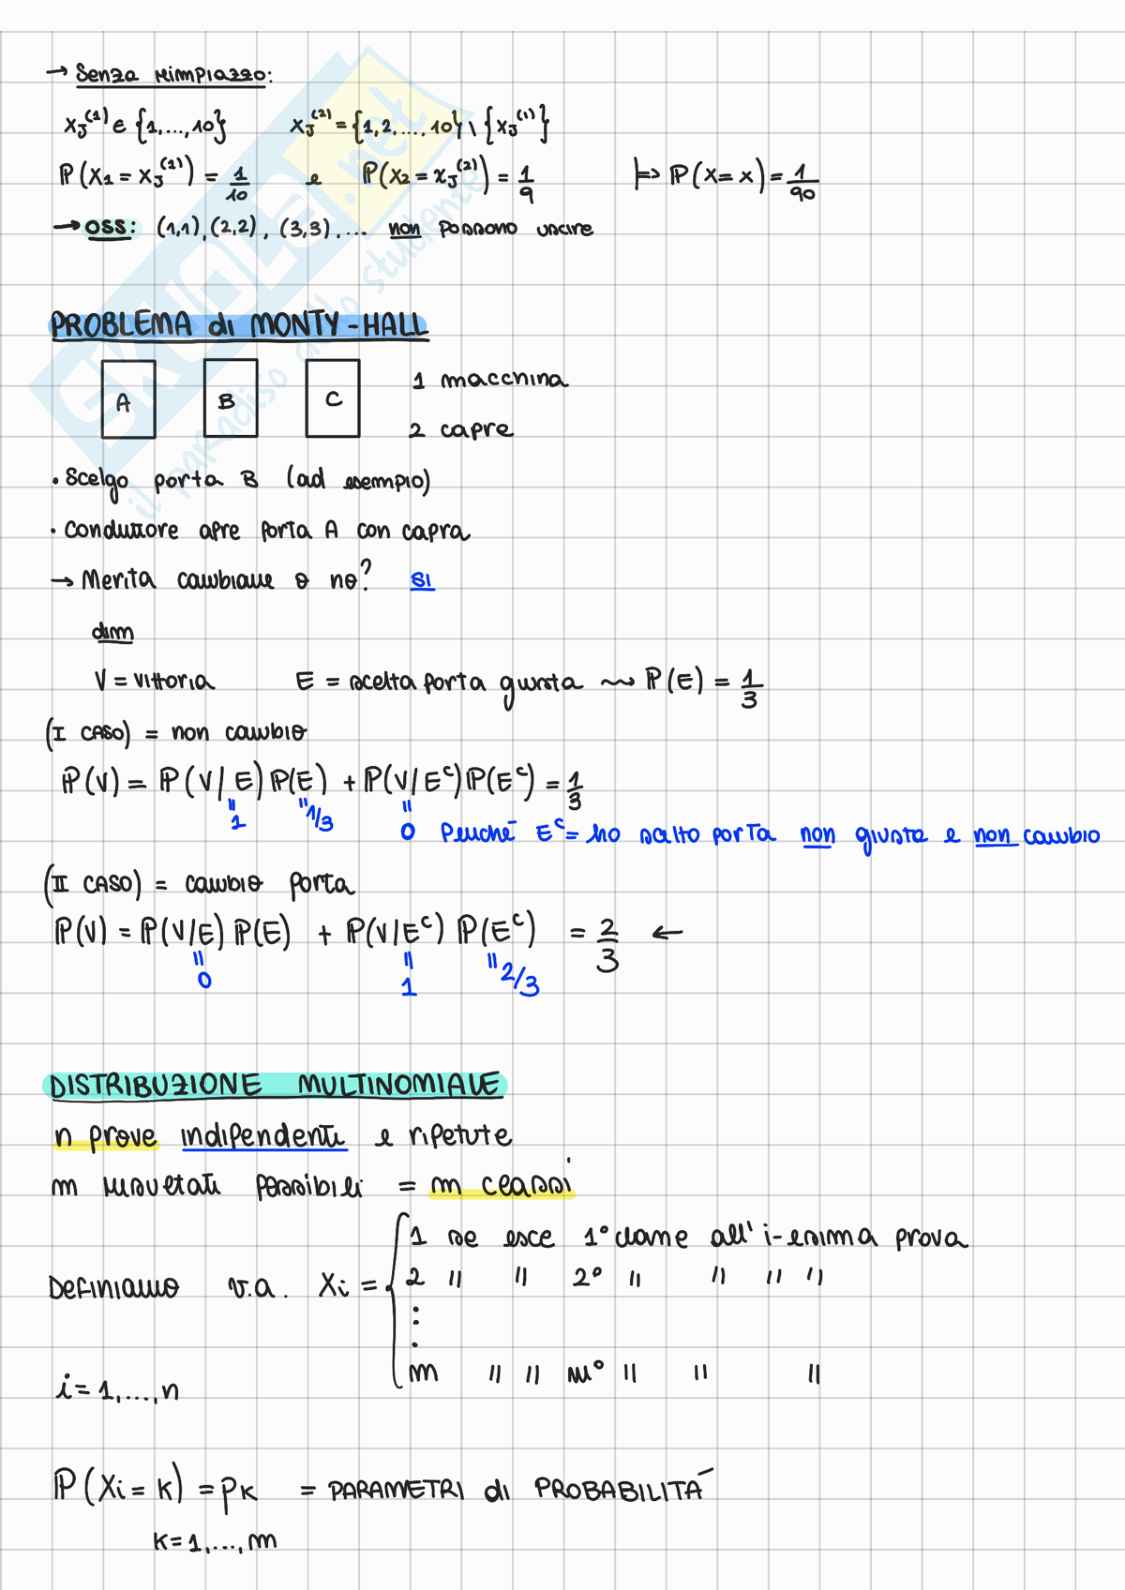 → Senza rimpiazzo:
xJ⁽¹⁾ ∈ {1,...,10} xJ⁽²⁾ = {1,2,...,10} \ {xJ⁽¹⁾}
ℙ(X₁ = xJ⁽¹⁾) = 1/10 e ℙ(X₂ = xJ⁽²⁾) = 1/9 ↦ ℙ(X = x) = 1/90
→ OSS: (1,1), (2,2), (3,3), ... non possono uscire
PROBLEMA di MONTY-HALL
A B C 1 macchina
2 capre
• Scelgo porta B (ad esempio)
• Conduttore apre porta A con capra
→ Merita cambiare o no? SI
dim
V = vittoria E = scelta porta giusta ⇝ ℙ(E) = 1/3
(I CASO) = non cambio
ℙ(V) = ℙ(V|E) ℙ(E) + ℙ(V|Eᶜ) ℙ(Eᶜ) = 1/3
= 1 = 1/3 = 0 Perché Eᶜ = ho scelto porta non giusta e non cambio
(II CASO) = cambio porta
ℙ(V) = ℙ(V|E) ℙ(E) + ℙ(V|Eᶜ) ℙ(Eᶜ) = 2/3 ←
= 0 = 1 = 2/3
DISTRIBUZIONE MULTINOMIALE
n prove indipendenti e ripetute
m risultati possibili = m classi
1 se esce 1° classe all'i-esima prova
Definiamo v.a. Xi = { 2 " " 2° " " " "
⋮
m " " m° " " "
i = 1,...,n
ℙ(Xi = k) = pk = PARAMETRI di PROBABILITÁ
k = 1,...,m
SKUOLA.net
il paradiso dello studente